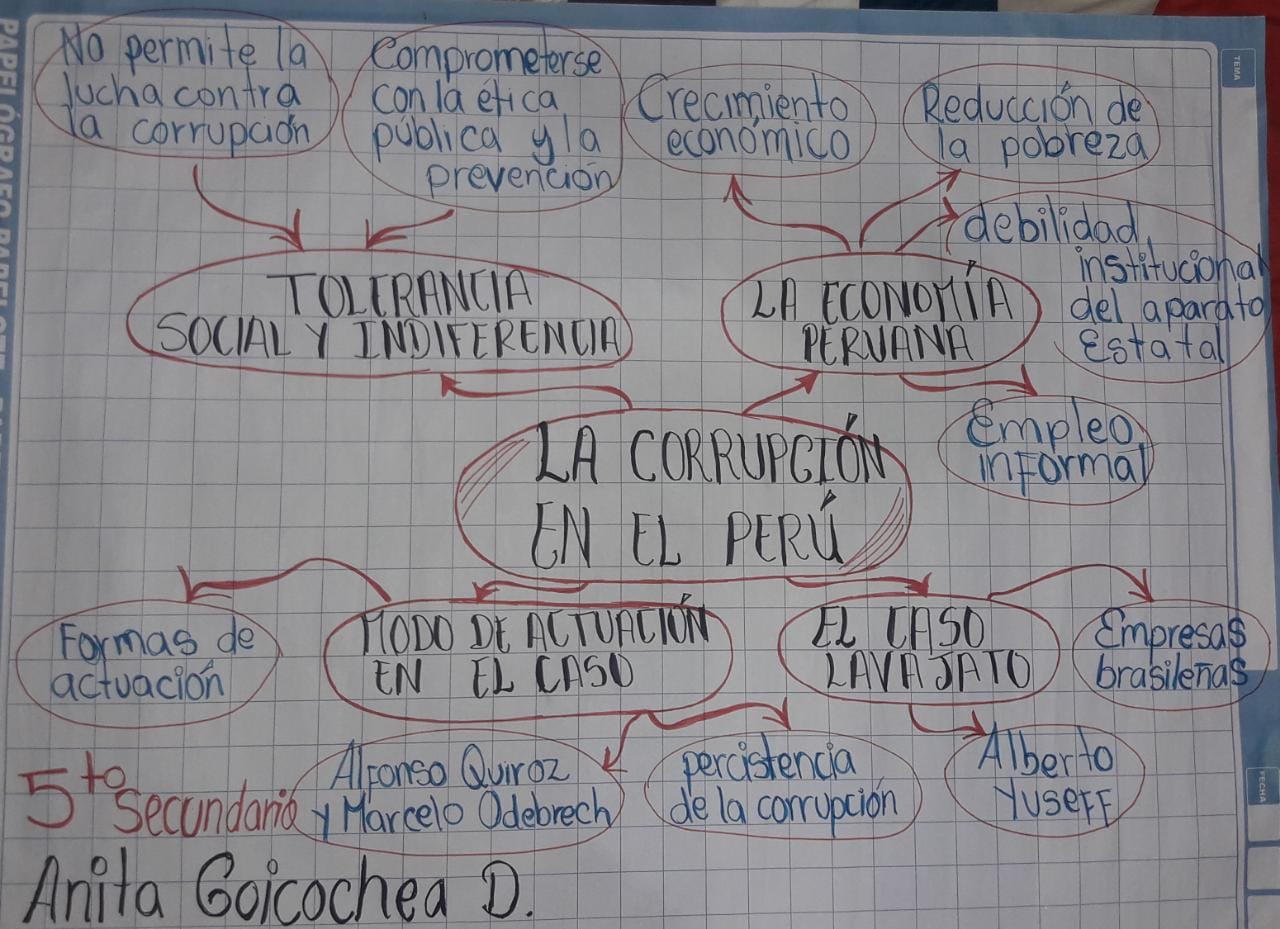 No permite la
lucha contra
la corrupción
Comprometerse
con la ética
pública y la
prevención
Crecimiento
económico
Reducción de
la pobreza
debilidad
institucional
del aparato
Estatal
TOLERANCIA
SOCIAL Y INDIFERENCIA
LA ECONOMÍA
PERUANA
Empleo
informal
LA CORRUPCIÓN
EN EL PERÚ
Formas de
actuación
MODO DE ACTUACIÓN
EN EL CASO
EL CASO
LAVAJATO
Empresas
brasileñas
Alfonso Quiroz
y Marcelo Odebrech
percistencia
de la corrupción
Alberto
YuseFF
5to Secundario
Anita Goicochea D.
TEMA
FECHA
PAPELÓGRAFO